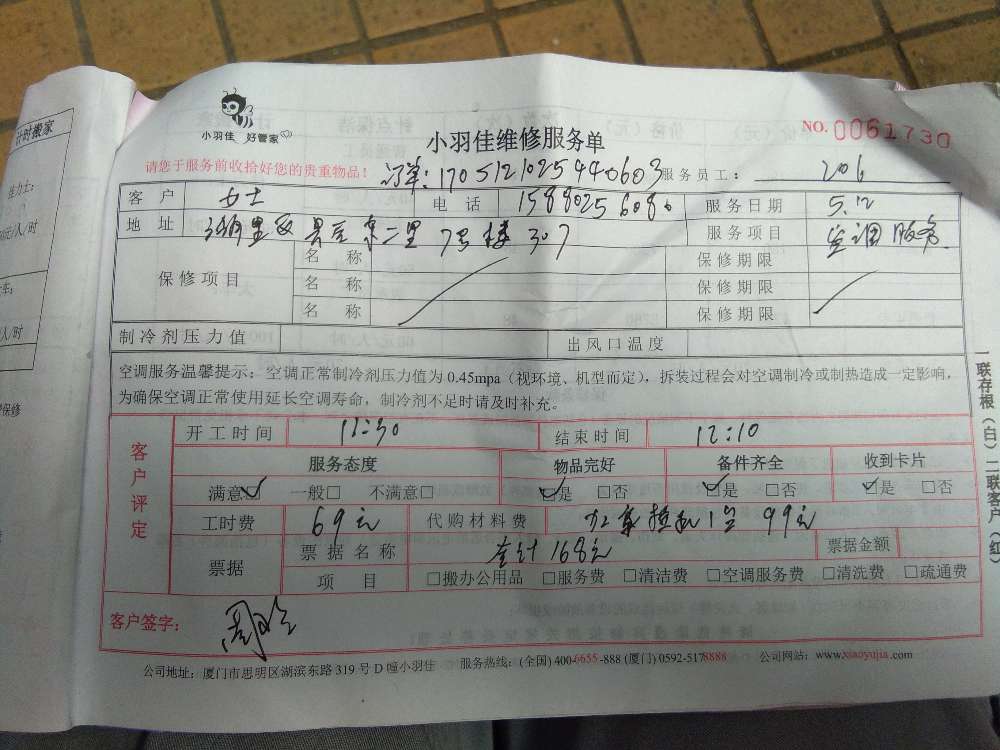 计时搬家
元/人/时
人/时
保修
小羽佳 好管家
小羽佳维修服务单
NO. 0061730
请您于服务前收拾好您的贵重物品！
订单：1705121025440603
服务员工： 206
客户 女士 电话 15880256080 服务日期 5.12
地址 二里 7号楼 307 服务项目 空调服务
保修项目 名称 保修期限
名称 保修期限
名称 保修期限
制冷剂压力值 出风口温度
空调服务温馨提示：空调正常制冷剂压力值为 0.45mpa（视环境、机型而定），拆装过程会对空调制冷或制热造成一定影响，
为确保空调正常使用延长空调寿命，制冷剂不足时请及时补充。
客户评定
开工时间 11:30 结束时间 12:10
服务态度 物品完好 备件齐全 收到卡片
满意☑ 一般□ 不满意□ ☑是 □否 ☑是 □否 ☑是 □否
工时费 69元 代购材料费 99元
票据 票据名称 合计168元 票据金额
项目 □搬办公用品 □服务费 □清洁费 □空调服务费 □清洗费 □疏通费
客户签字：
公司地址：厦门市思明区湖滨东路 319 号 D 幢小羽佳 服务热线：(全国) 400-6655-888 (厦门) 0592-5178888 公司网站：www.xiaoyujia.com
一联存根（白）二联客户（红）